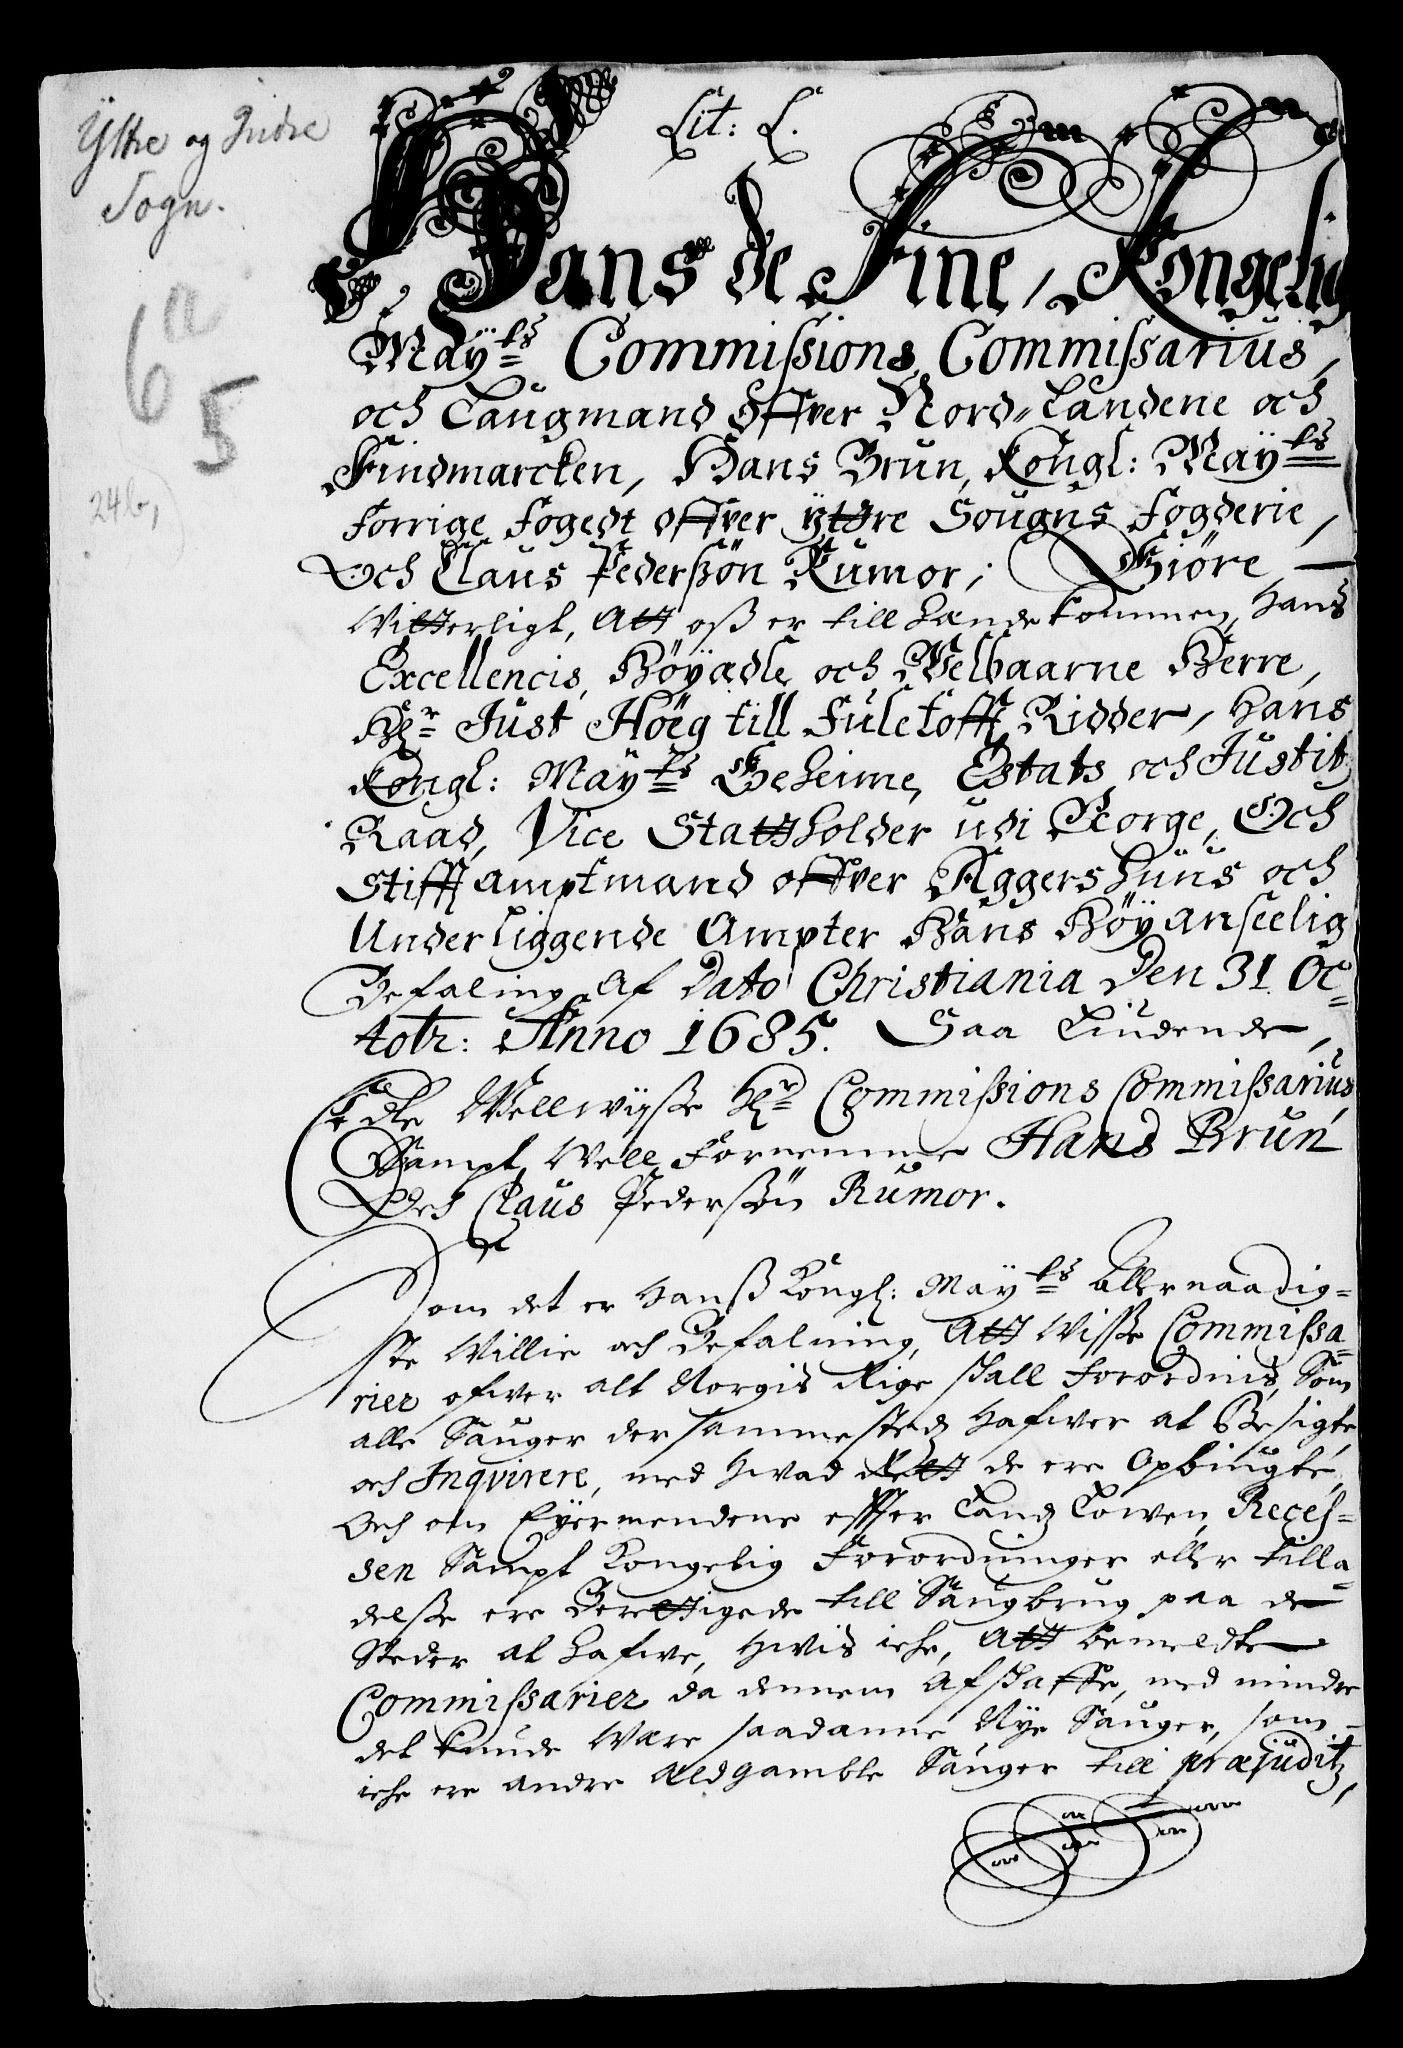 Lit: L.
Ÿttre og Indre
Sogn.
6a
5
24b,
Hans de Fine, Kongelig
Maÿts Commissions Commissarius,
och Laugmand offver Nord-Landene och
Findmarcken, Hans Brun, Kongl: Maÿts
forrige fogedt offver ÿttre Sougns fogderie,
Och Claus Pederssøn Rumor; Giøre
Witterligt, Att oss er till hænde kommen, Hans
Excellencis, Høÿædle och Welbaarne Herre,
Hr Just Høeg till Fuletofft, Ridder, Hans
Kongl: Maÿts Geheime, Estats och Justit
Raad, Vice Stattholder udi Norge, Och
Stifft amptmand offver Aggershuus och
Underliggende Ampter Hans Høÿanseelig
Befaling Af Dato Christiania Den 31 Oc=
tobr: Anno 1685. Saa Liudende,
Edle Wellwiisse Hr Commissions Commissarius,
Sampt Well Fornemme Hans Brun
Och Claus Pederssøn Rumor.
Som det er Hanss Kongl: Maÿts allernaadig=
ste Willie och Befalning, Att Wisse Commissa=
rier ofwer alt Norgis Rige skall forordnis, Som
alle Sauger der sammestedz Hafwer at Besigte
och Inqvirere, med Hwad Rett de ere Opbiugte,
Och om Eÿermendene effter Landz Lowen, Reces=
sen Sampt Kongelig Forordninger eller tilla=
delsse ere Berettigede till Saugbrug paa de
Steder at hafwe, Hwis iche, Att bemeldte
Commissarier da dennem Afskaffe, med mindre
det kunde Wære saadanne Nÿe Sauger, som
iche ere andre Aldgamble Sauger till præjuditz,